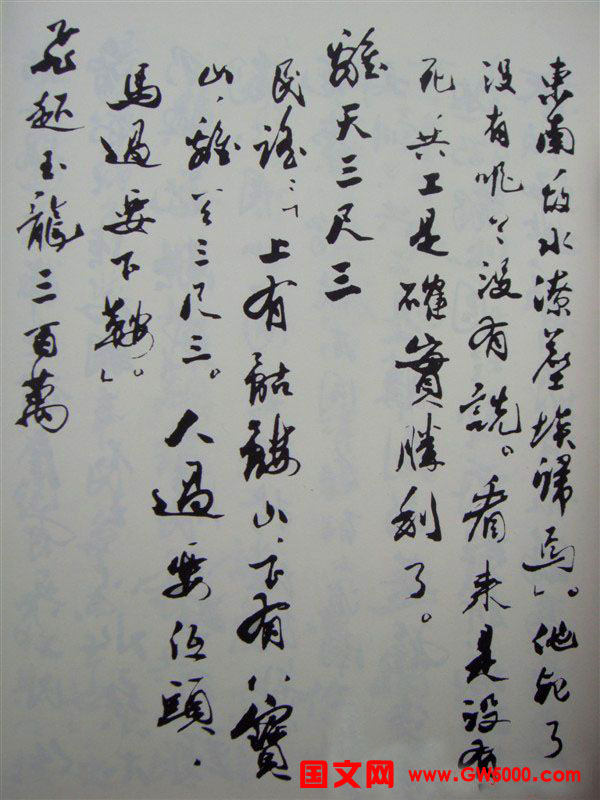 東南故水潦塵埃歸焉」。他死了
沒有呢?沒有說。看來是沒有
死,共工是確實勝利了。
離天三尺三
民謠:「上有骷髏山,下有八寶
山,離天三尺三。人過要低頭,
馬過要下鞍」。
飛起玉龍三百萬
国文网 www.GW5000.com